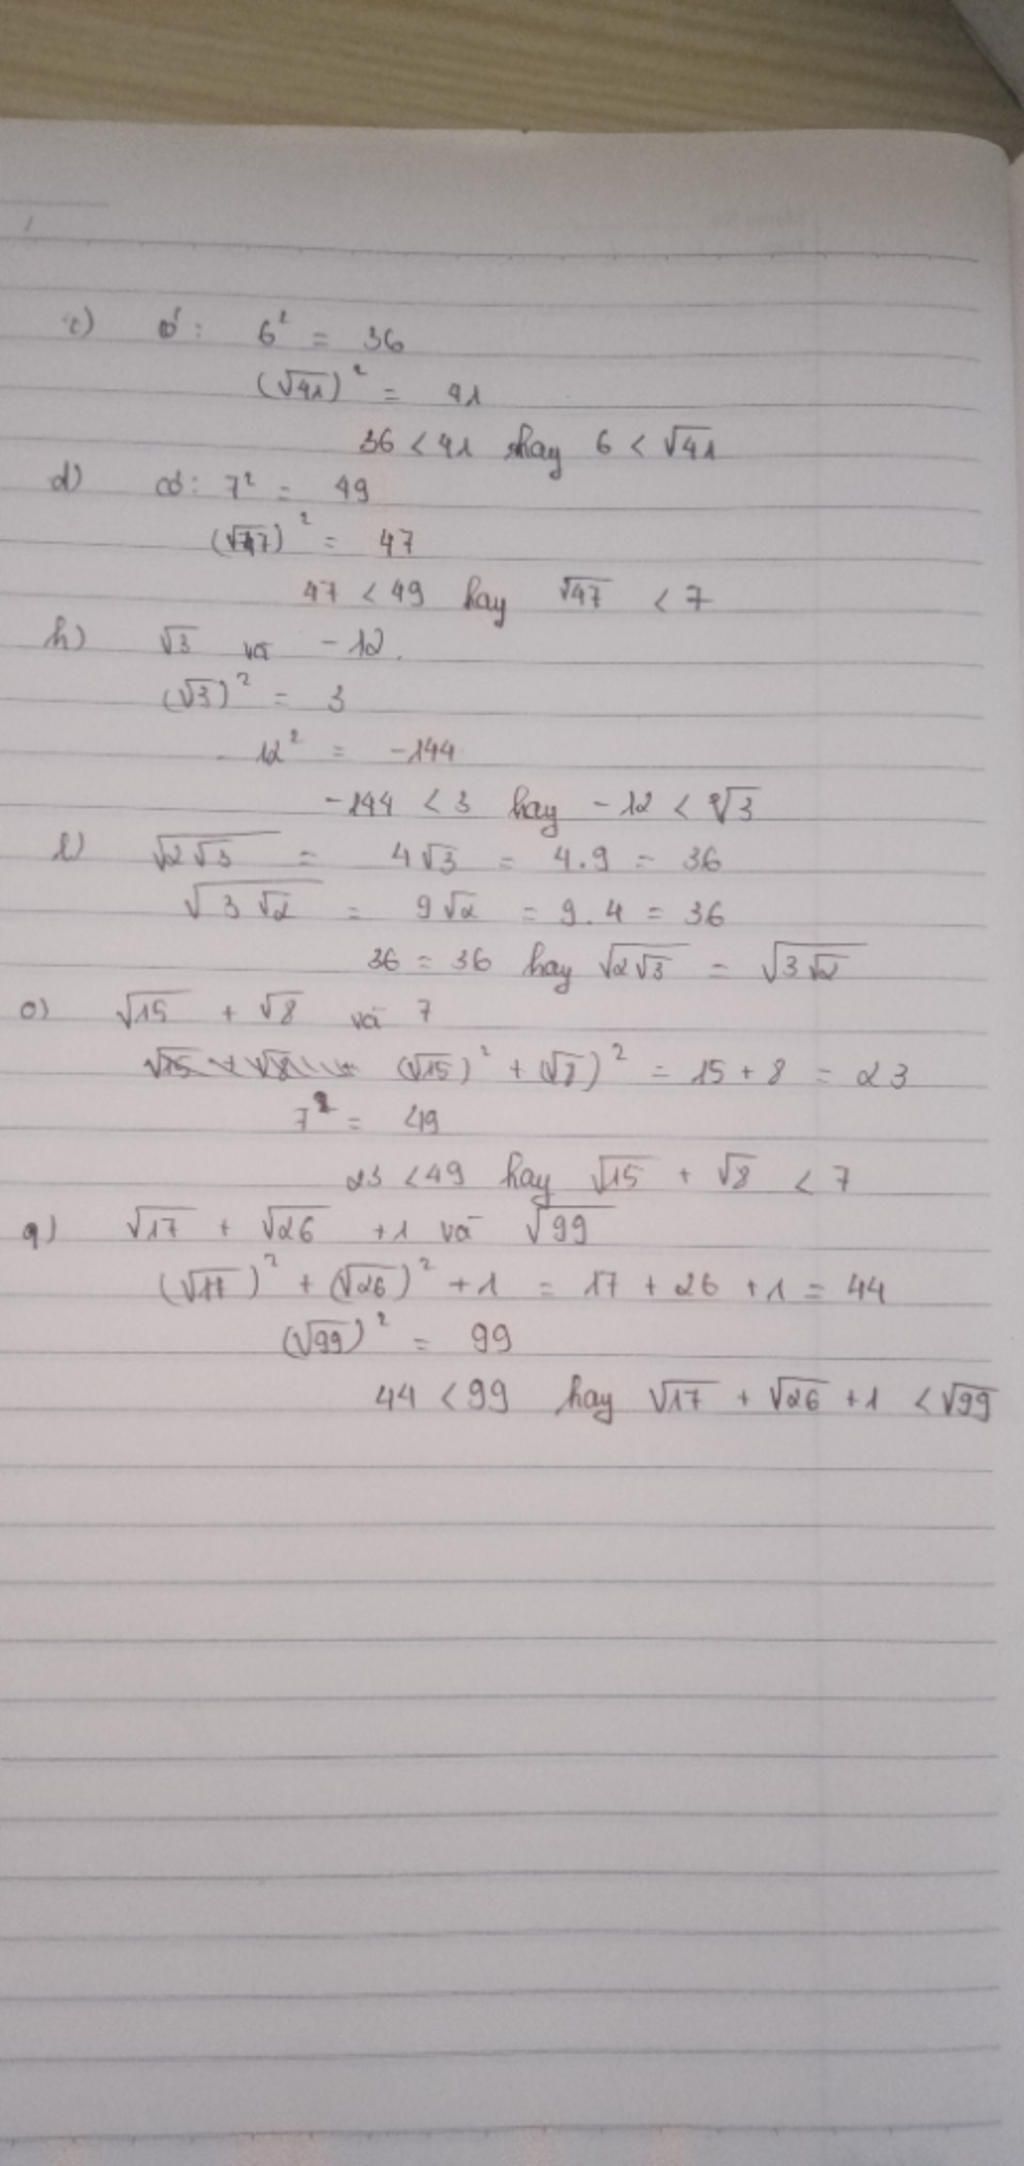 c) có: 6² = 36
(√41)² = 41
36 < 41 hay 6 < √41
d) có: 7² = 49
(√47)² = 47
47 < 49 hay √47 < 7
h) √3 và -12.
(√3)² = 3
-12² = -144
-144 < 3 hay -12 < √3
l) √2√3 = 4√3 = 4.9 = 36
√3√2 = 9√2 = 9.4 = 36
36 = 36 hay √2√3 = √3√2
o) √15 + √8 và 7
(√15)² + (√8)² = 15 + 8 = 23
7² = 49
23 < 49 hay √15 + √8 < 7
q) √17 + √26 + 1 và √99
(√17)² + (√26)² + 1 = 17 + 26 + 1 = 44
(√99)² = 99
44 < 99 hay √17 + √26 + 1 < √99